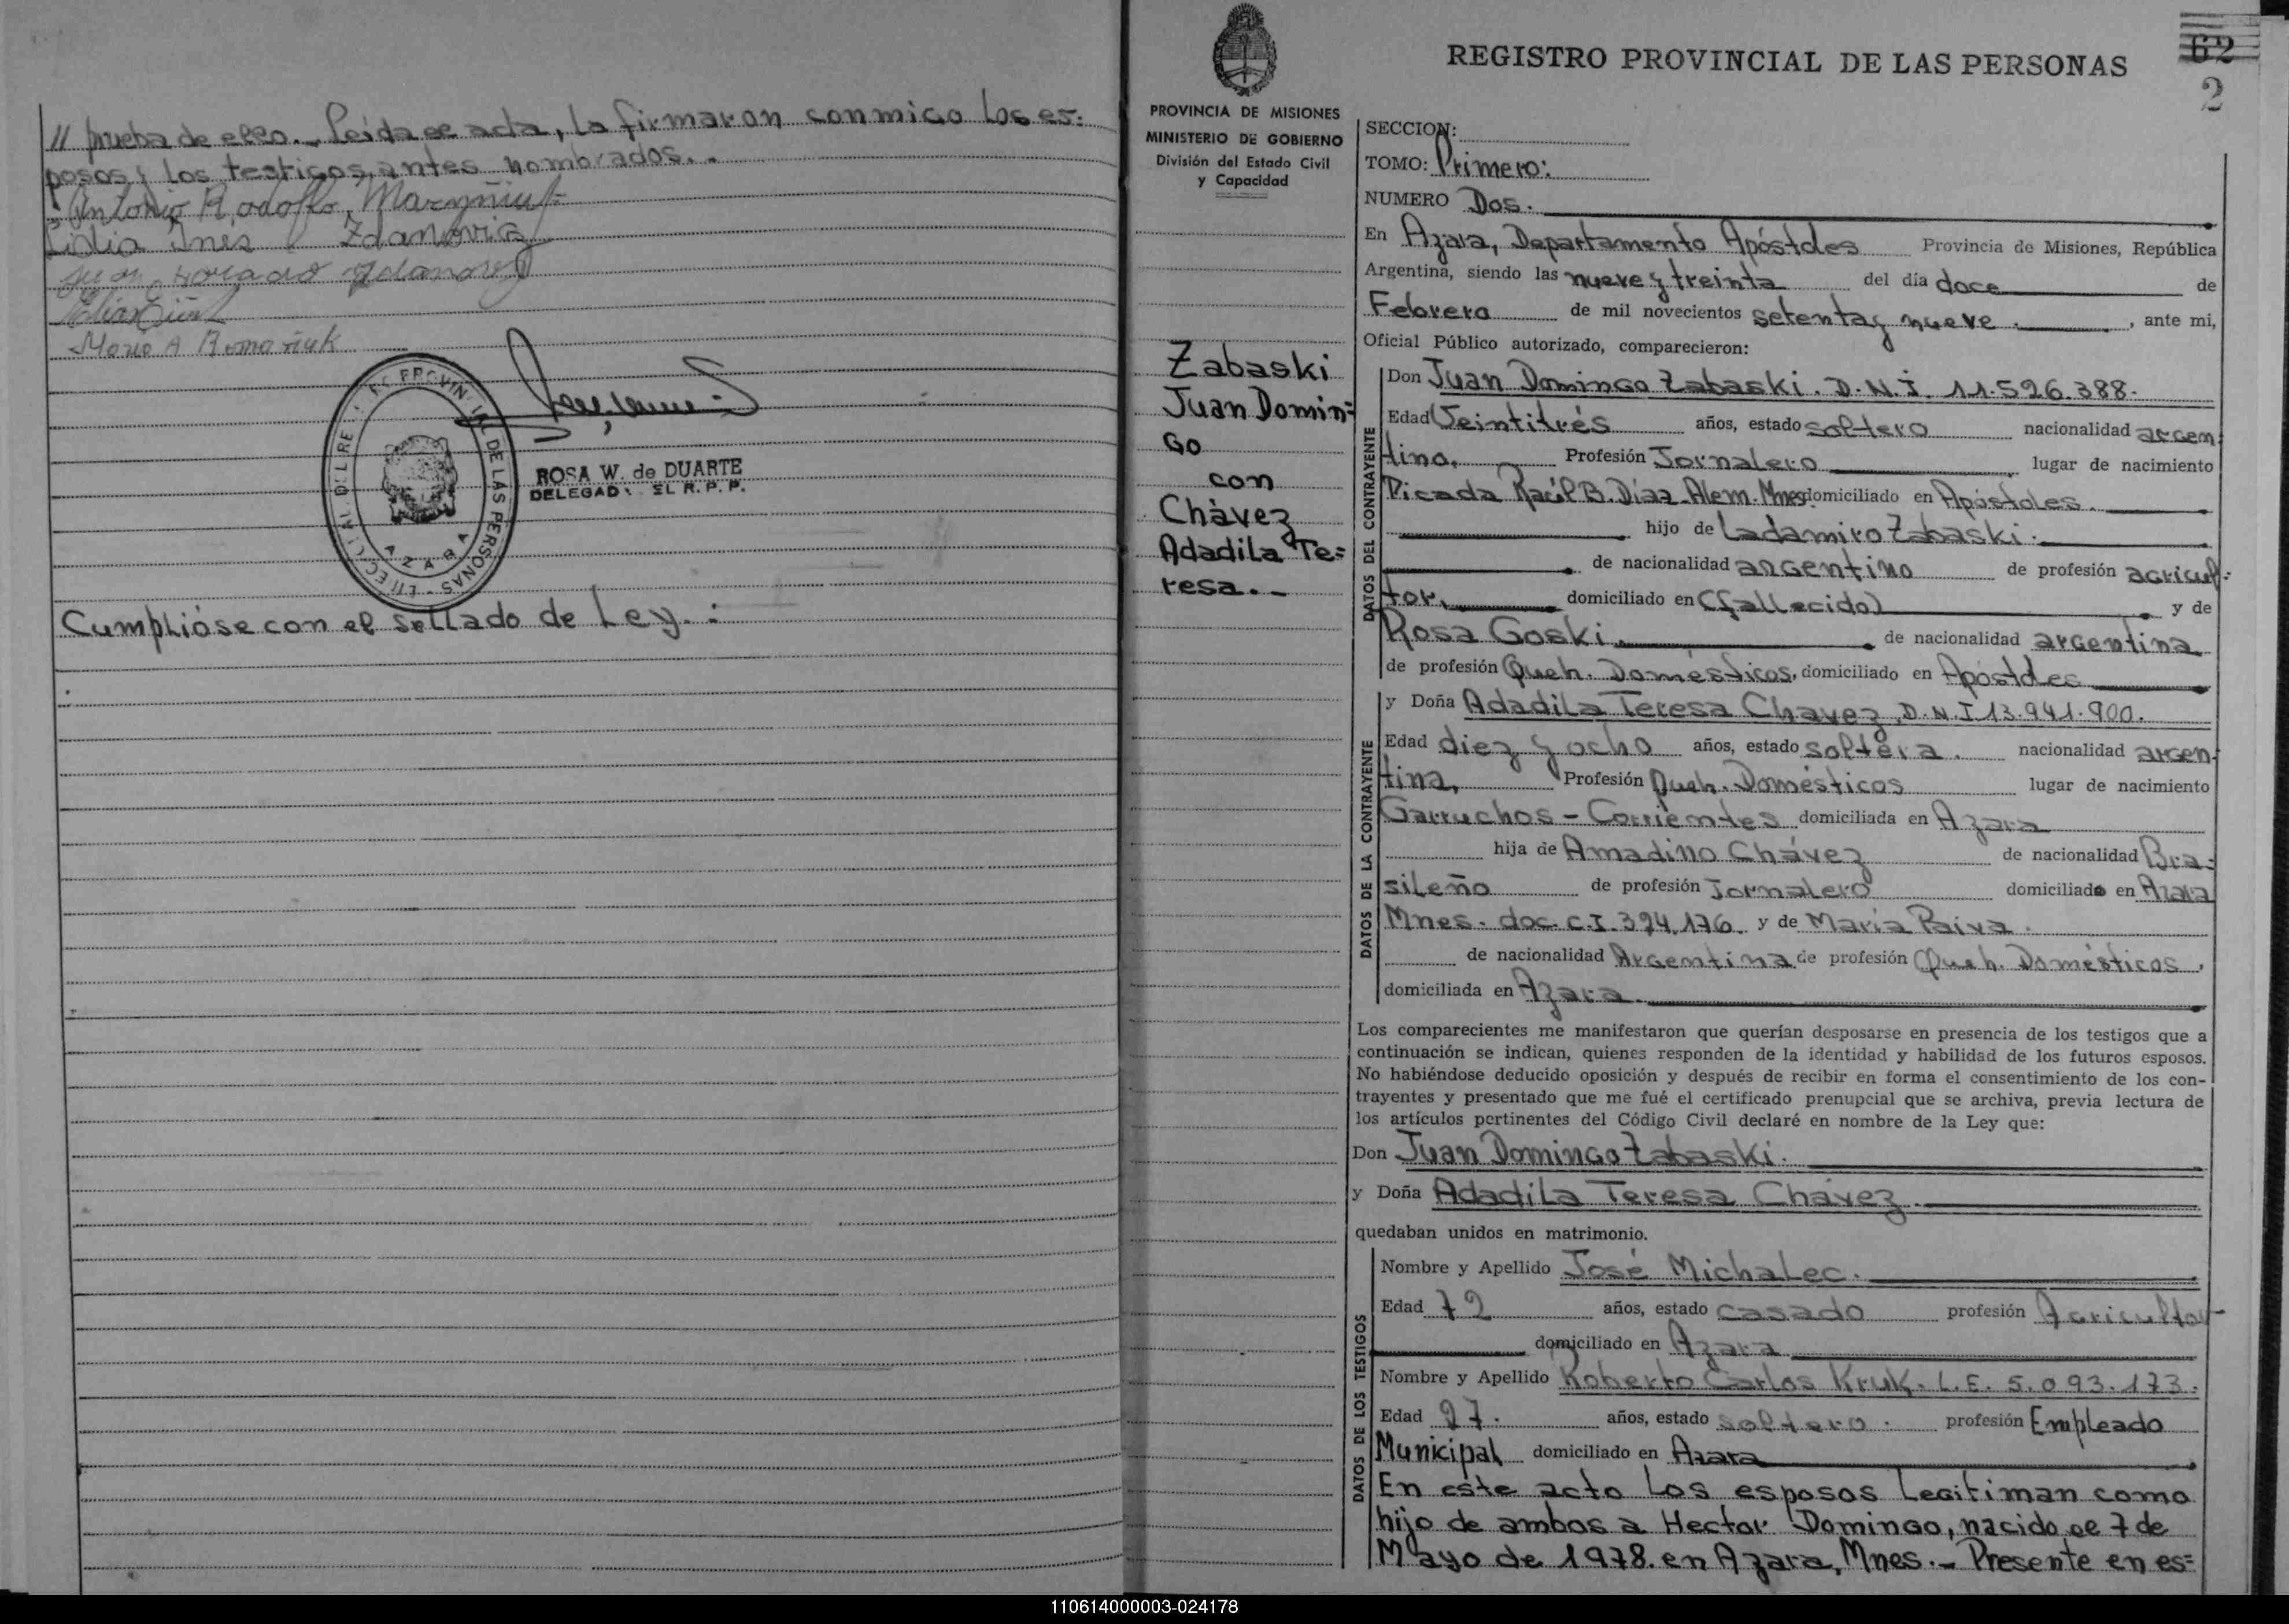 // prueba de ello._ Leida el acta, la firmaron conmigo los es=
posos y los testigos antes nombrados._
Antonio Rodolfo Maryñiuk
Lidia Inés Zdanovicz
Horacio
Mario A Romaniuk
REGISTRO PROVINCIAL DE LAS PERSONAS
AZARA
ROSA W. de DUARTE
DELEGADA EL R. P. P.
Cumplióse con el sellado de Ley.:
PROVINCIA DE MISIONES
MINISTERIO DE GOBIERNO
División del Estado Civil
y Capacidad
Zabaski
Juan Domin=
go
con
Chávez
Adadila Te=
resa._
REGISTRO PROVINCIAL DE LAS PERSONAS
62
2
SECCION:
TOMO: Primero:
NUMERO Dos.
En Azara, Departamento Apóstoles Provincia de Misiones, República
Argentina, siendo las nueve y treinta del día doce de
Febrero de mil novecientos setenta y nueve. , ante mi,
Oficial Público autorizado, comparecieron:
DATOS DEL CONTRAYENTE
Don Juan Domingo Zabaski. D.N.I. 11.526.388.
Edad Veintitrés años, estado soltero nacionalidad argen=
tina, Profesión Jornalero lugar de nacimiento
Picada Raúl B. Díaz Alem. Mnes. domiciliado en Apóstoles.
hijo de Ladamiro Zabaski.
de nacionalidad argentino de profesión agricul=
tor, domiciliado en (fallecido) y de
Rosa Goski. de nacionalidad argentina
de profesión Queh. Domésticos, domiciliado en Apóstoles
DATOS DE LA CONTRAYENTE
y Doña Adadila Teresa Chavez, D.N.I 13.941.900.
Edad diez y ocho años, estado soltera. nacionalidad argen=
tina, Profesión Queh. Domésticos lugar de nacimiento
Garruchos - Corrientes domiciliada en Azara
hija de Amadino Chávez de nacionalidad Bra=
sileño de profesión Jornalero domiciliado en Azara
Mnes. doc. C.I. 394.176. y de María Paiva.
de nacionalidad Argentina de profesión Queh. Domésticos,
domiciliada en Azara.
Los comparecientes me manifestaron que querían desposarse en presencia de los testigos que a
continuación se indican, quienes responden de la identidad y habilidad de los futuros esposos.
No habiéndose deducido oposición y después de recibir en forma el consentimiento de los con-
trayentes y presentado que me fué el certificado prenupcial que se archiva, previa lectura de
los artículos pertinentes del Código Civil declaré en nombre de la Ley que:
Don Juan Domingo Zabaski.
y Doña Adadila Teresa Chávez.
quedaban unidos en matrimonio.
DATOS DE LOS TESTIGOS
Nombre y Apellido José Michalec.
Edad 72 años, estado casado profesión Agricultor
domiciliado en Azara
Nombre y Apellido Roberto Carlos Kruk. L.E. 5.093.173.
Edad 27. años, estado soltero. profesión Empleado
Municipal domiciliado en Azara
En este acto los esposos legitiman como
hijo de ambos a Hector Domingo, nacido el 7 de
Mayo de 1978. en Azara, Mnes._ Presente en es=
110614000003-024178